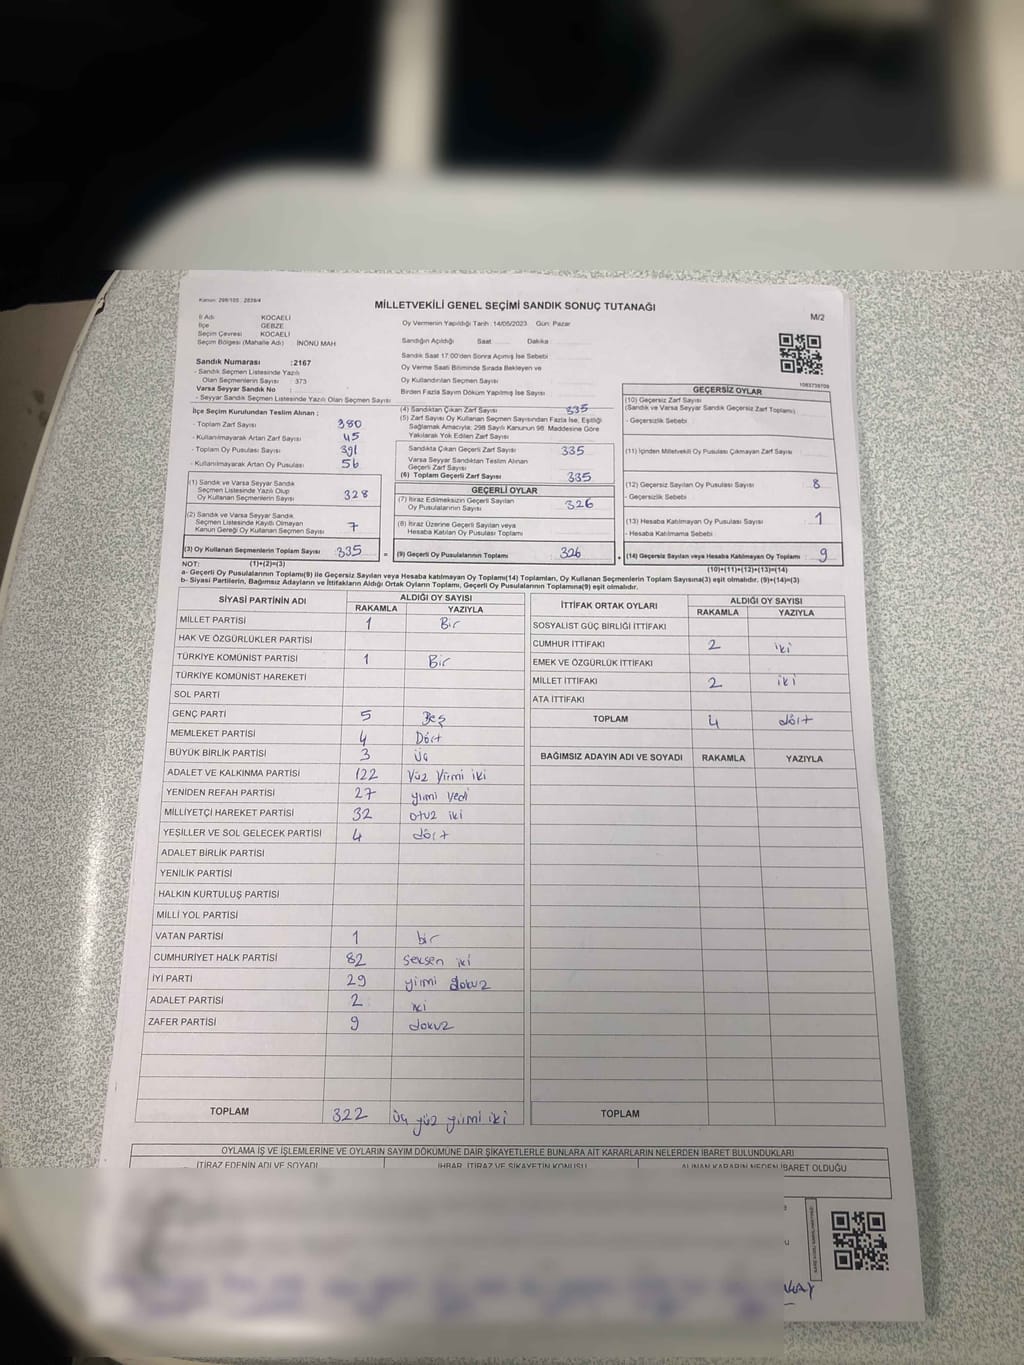 Kanun: 298/105 , 2839/4
MİLLETVEKİLİ GENEL SEÇİMİ SANDIK SONUÇ TUTANAĞI
M/2
İl Adı KOCAELİ
İlçe GEBZE
Seçim Çevresi KOCAELİ
Seçim Bölgesi (Mahalle Adı) İNÖNÜ MAH
Sandık Numarası :2167
- Sandık Seçmen Listesinde Yazılı
Olan Seçmenlerin Sayısı : 373
Varsa Seyyar Sandık No :
- Seyyar Sandık Seçmen Listesinde Yazılı Olan Seçmen Sayısı
Oy Vermenin Yapıldığı Tarih :14/05/2023 Gün: Pazar
Sandığın Açıldığı Saat ...... Dakika ......
Sandık Saat 17:00'den Sonra Açılmış İse Sebebi
Oy Verme Saati Bitiminde Sırada Bekleyen ve
Oy Kullandırılan Seçmen Sayısı
Birden Fazla Sayım Döküm Yapılmış İse Sayısı
1083739709
İlçe Seçim Kurulundan Teslim Alınan :
- Toplam Zarf Sayısı 380
- Kullanılmayarak Artan Zarf Sayısı 45
- Toplam Oy Pusulası Sayısı 391
- Kullanılmayarak Artan Oy Pusulası 56
(1) Sandık ve Varsa Seyyar Sandık
Seçmen Listesinde Yazılı Olup
Oy Kullanan Seçmenlerin Sayısı 328
(2) Sandık ve Varsa Seyyar Sandık
Seçmen Listesinde Kayıtlı Olmayan
Kanun Gereği Oy Kullanan Seçmen Sayısı 7
(3) Oy Kullanan Seçmenlerin Toplam Sayısı 335
(4) Sandıktan Çıkan Zarf Sayısı 335
(5) Zarf Sayısı Oy Kullanan Seçmen Sayısından Fazla İse, Eşitliği
Sağlamak Amacıyla; 298 Sayılı Kanunun 98. Maddesine Göre
Yakılarak Yok Edilen Zarf Sayısı
Sandıkta Çıkan Geçerli Zarf Sayısı 335
Varsa Seyyar Sandıktan Teslim Alınan
Geçerli Zarf Sayısı
(6) Toplam Geçerli Zarf Sayısı 335
GEÇERLİ OYLAR
(7) İtiraz Edilmeksizin Geçerli Sayılan
Oy Pusulalarının Sayısı 326
(8) İtiraz Üzerine Geçerli Sayılan veya
Hesaba Katılan Oy Pusulası Toplamı
= (9) Geçerli Oy Pusulalarının Toplamı 326
GEÇERSİZ OYLAR
(10) Geçersiz Zarf Sayısı
(Sandık ve Varsa Seyyar Sandık Geçersiz Zarf Toplamı)
- Geçersizlik Sebebi
(11) İçinden Milletvekili Oy Pusulası Çıkmayan Zarf Sayısı
(12) Geçersiz Sayılan Oy Pusulası Sayısı 8
- Geçersizlik Sebebi
(13) Hesaba Katılmayan Oy Pusulası Sayısı 1
- Hesaba Katılmama Sebebi
+ (14) Geçersiz Sayılan veya Hesaba Katılmayan Oy Toplamı 9
NOT: (1)+(2)=(3) (10)+(11)+(12)+(13)=(14)
a- Geçerli Oy Pusulalarının Toplamı(9) ile Geçersiz Sayılan veya Hesaba katılmayan Oy Toplamı(14) Toplamları, Oy Kullanan Seçmenlerin Toplam Sayısına(3) eşit olmalıdır. (9)+(14)=(3)
b- Siyasi Partilerin, Bağımsız Adayların ve İttifakların Aldığı Ortak Oyların Toplamı, Geçerli Oy Pusulalarının Toplamına(9) eşit olmalıdır.
SİYASİ PARTİNİN ADI ALDIĞI OY SAYISI
RAKAMLA YAZIYLA
MİLLET PARTİSİ 1 Bir
HAK VE ÖZGÜRLÜKLER PARTİSİ
TÜRKİYE KOMÜNİST PARTİSİ 1 Bir
TÜRKİYE KOMÜNİST HAREKETİ
SOL PARTİ
GENÇ PARTİ 5 Beş
MEMLEKET PARTİSİ 4 Dört
BÜYÜK BİRLİK PARTİSİ 3 Üç
ADALET VE KALKINMA PARTİSİ 122 Yüz Yirmi iki
YENİDEN REFAH PARTİSİ 27 yirmi Yedi
MİLLİYETÇİ HAREKET PARTİSİ 32 otuz iki
YEŞİLLER VE SOL GELECEK PARTİSİ 4 dört
ADALET BİRLİK PARTİSİ
YENİLİK PARTİSİ
HALKIN KURTULUŞ PARTİSİ
MİLLİ YOL PARTİSİ
VATAN PARTİSİ 1 bir
CUMHURİYET HALK PARTİSİ 82 seksen iki
İYİ PARTİ 29 yirmi dokuz
ADALET PARTİSİ 2 iki
ZAFER PARTİSİ 9 dokuz
TOPLAM 322 Üç yüz yirmi iki
İTTİFAK ORTAK OYLARI ALDIĞI OY SAYISI
RAKAMLA YAZIYLA
SOSYALİST GÜÇ BİRLİĞİ İTTİFAKI
CUMHUR İTTİFAKI 2 iki
EMEK VE ÖZGÜRLÜK İTTİFAKI
MİLLET İTTİFAKI 2 iki
ATA İTTİFAKI
TOPLAM 4 dört
BAĞIMSIZ ADAYIN ADI VE SOYADI RAKAMLA YAZIYLA
TOPLAM
OYLAMA İŞ VE İŞLEMLERİNE VE OYLARIN SAYIM DÖKÜMÜNE DAİR ŞİKAYETLERLE BUNLARA AİT KARARLARIN NELERDEN İBARET BULUNDUKLARI
İTİRAZ EDENİN ADI VE SOYADI İHBAR, İTİRAZ VE ŞİKAYETİN KONUSU ALINAN KARARIN NEDEN İBARET OLDUĞU